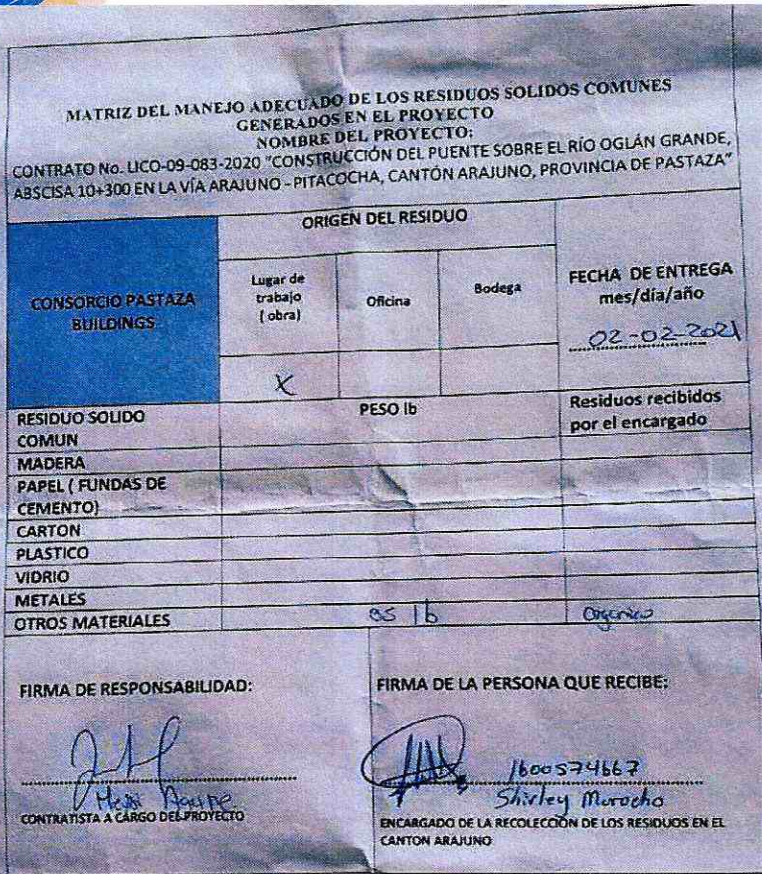 MATRIZ DEL MANEJO ADECUADO DE LOS RESIDUOS SOLIDOS COMUNES
GENERADOS EN EL PROYECTO
NOMBRE DEL PROYECTO:
CONTRATO No. LICO-09-083-2020 "CONSTRUCCIÓN DEL PUENTE SOBRE EL RÍO OGLÁN GRANDE,
ABSCISA 10+300 EN LA VÍA ARAJUNO - PITACOCHA, CANTÓN ARAJUNO, PROVINCIA DE PASTAZA"
CONSORCIO PASTAZA
BUILDINGS
ORIGEN DEL RESIDUO
Lugar de
trabajo
( obra)
Oficina
Bodega
FECHA DE ENTREGA
mes/día/año
02-02-2021
X
RESIDUO SOLIDO
COMUN
PESO lb
Residuos recibidos
por el encargado
MADERA
PAPEL ( FUNDAS DE
CEMENTO)
CARTON
PLASTICO
VIDRIO
METALES
OTROS MATERIALES lb Organico
FIRMA DE RESPONSABILIDAD:
CONTRATISTA A CARGO DEL PROYECTO
FIRMA DE LA PERSONA QUE RECIBE:
1600574667
Shirley Morocho
ENCARGADO DE LA RECOLECCIÓN DE LOS RESIDUOS EN EL
CANTON ARAJUNO